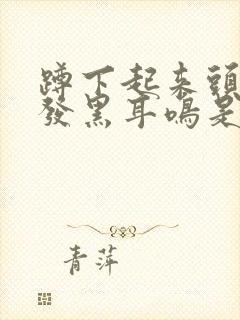 蹲下起来頭
發黑耳鳴是
青萍